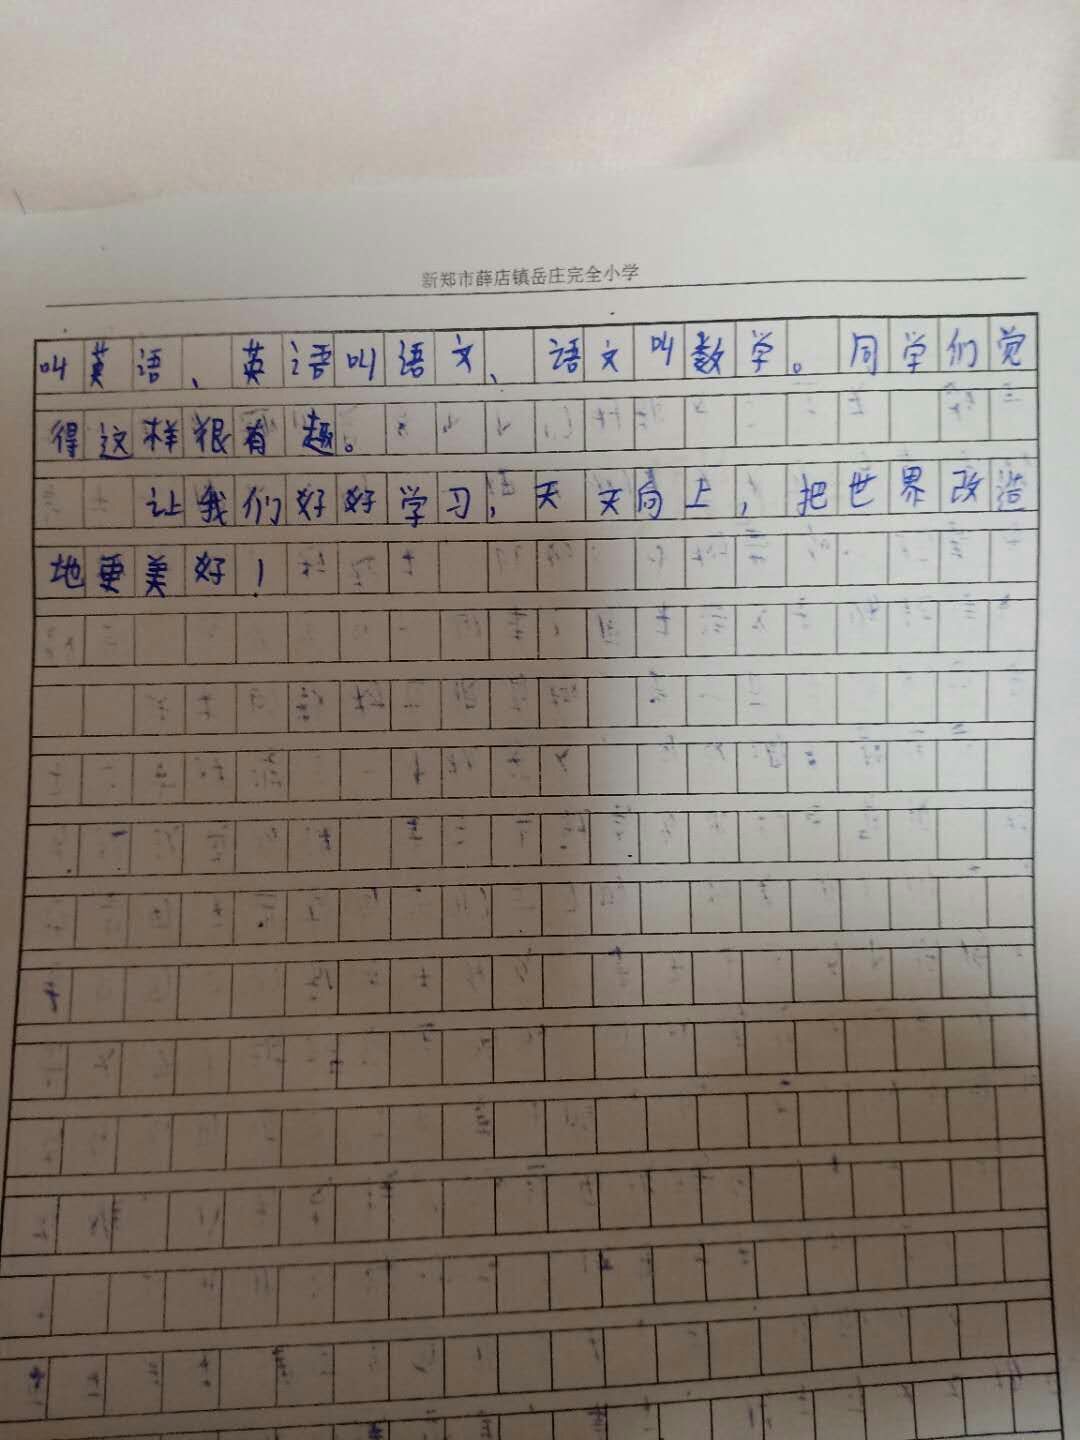 新郑市薛店镇岳庄完全小学
叫英语、英语叫语文、语文叫数学。同学们觉
得这样很有趣。
让我们好好学习,天天向上,把世界改造
地更美好!